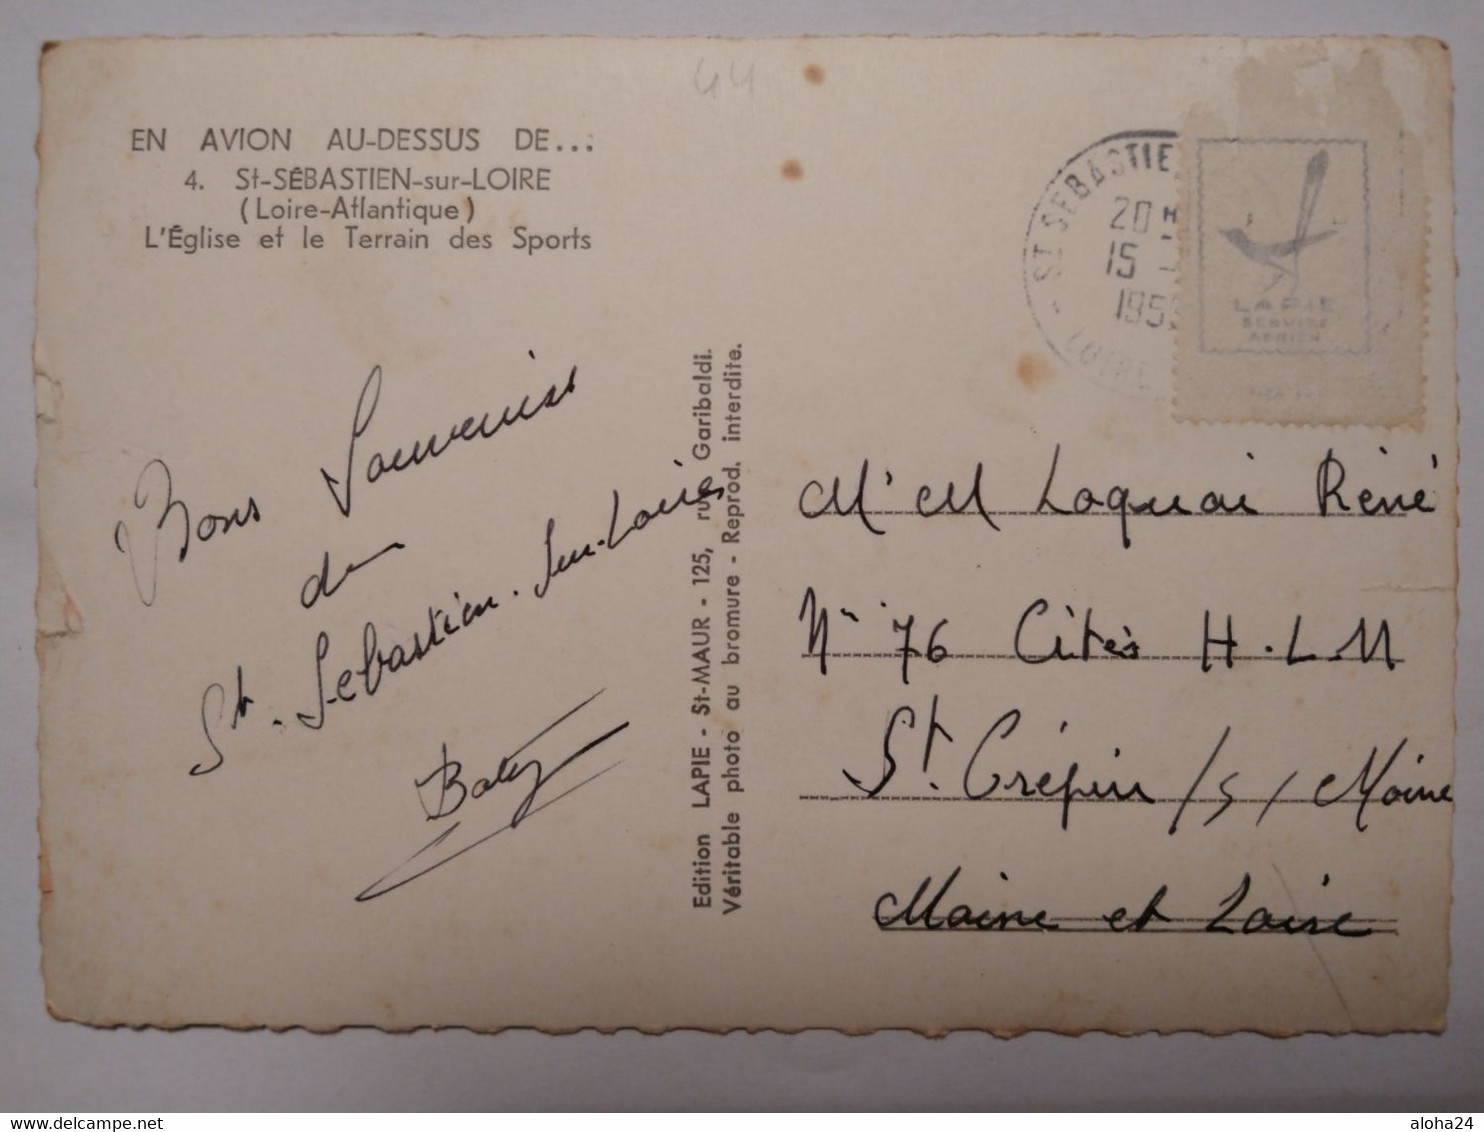 44
EN AVION AU-DESSUS DE...
4. St-SÉBASTIEN-sur-LOIRE
(Loire-Atlantique)
L'Église et le Terrain des Sports
Bons Souvenirs
de
St. Sebastien-Sur-Loires
Edition LAPIE - St-MAUR - 125, rue Garibaldi.
Véritable photo au bromure - Reprod. interdite.
ST SEBASTIE
20 H
15 -
195
LOIRE
LAPIE
SERVICE
AERIEN
Mr M Loquai Réné
N° 76 Cités H.L.M
St. Crépin /s/ Moine
Maine et Loire
aloha24
www.delcampe.net